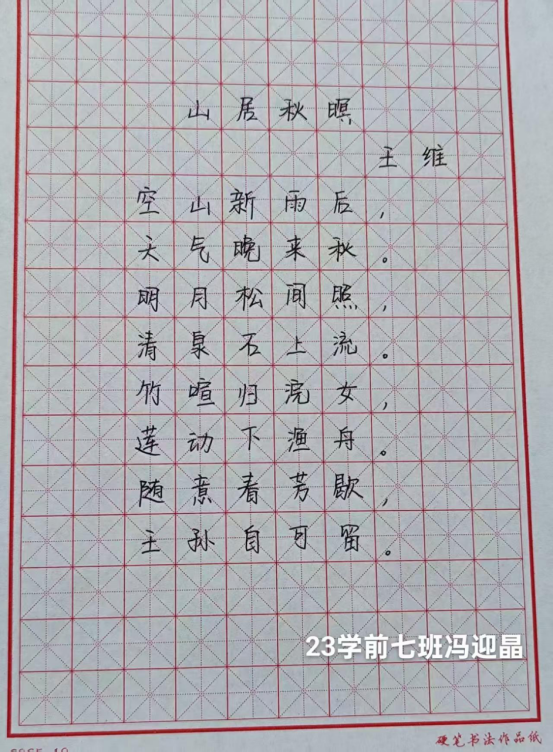 山居秋暝
王维
空山新雨后,
天气晚来秋。
明月松间照,
清泉石上流。
竹喧归浣女,
莲动下渔舟。
随意春芳歇,
王孙自可留。
23学前七班冯迎晶
硬笔书法作品纸